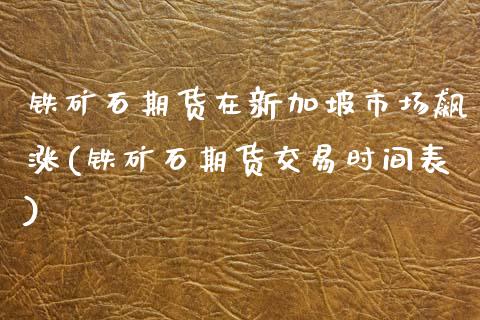 铁矿石期货在新加坡市场飙
涨(铁矿石期货交易时间表
)